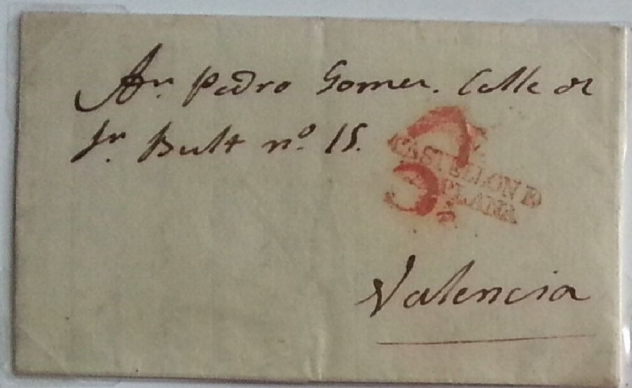 A Dn. Pedro Gomez. Calle de
Sn. Bult nº. 15.
CASTELLON D
PLANA
Valencia